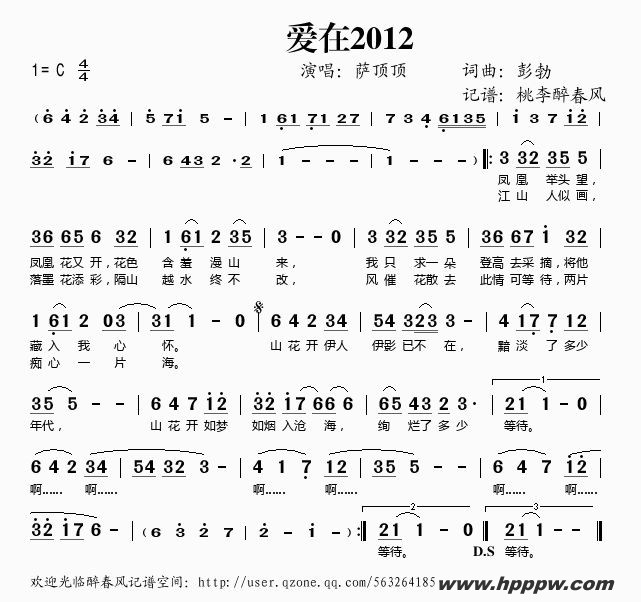 爱在2012
1= C 4/4 演唱：萨顶顶 词曲：彭勃
记谱：桃李醉春风
( 6 4 2 34 | 5 71 5 - | 1 61 71 27 | 7 3 4 6135 | 5 3 7 12 |
32 17 6 - | 6 43 2·2 | 1 - - - | 1 - - - ) ‖: 3 32 35 5 |
凤 凰 举头 望，
江 山 人似 画，
36 65 6 32 | 1 61 2 35 | 3 - - 0 | 3 32 35 5 | 36 67 1 32 |
凤凰 花又 开，花色 含 羞 漫 山 来， 我 只 求一 朵 登高 去采 摘，将他
落墨 花添 彩，隔山 越 水 终 不 改， 风 催 花散 去 此情 可等 待，两片
1 61 2 03 | 31 1 - 0 | 6 4 2 34 | 54 3 323 | 3 - - - | 4 17 7 12 |
藏 入 我 心 怀。 山 花 开 伊人 伊影 已 不 在， 黯 淡 了 多少
痴 心 一 片 海。
35 5 - - | 6 4 7 12 | 32 17 66 6 | 65 43 2 3· | 21 1 - 0 |
年代， 山 花 开 如梦 如烟 入沧 海， 绚 烂了 多 少 等待。
6 4 2 34 | 54 32 3 - | 4 1 7 12 | 35 5 - - | 6 4 7 12 |
啊…… 啊…… 啊…… 啊…… 啊…… 啊……
32 17 6 - | ( 6 3 2 7 | 2 - 1 - ) :‖ 21 1 - 0 ‖ 21 1 - 0 ‖
等待。 D.S 等待。
欢迎光临醉春风记谱空间：http://user.qzone.qq.com/563264185
www.hpppw.com